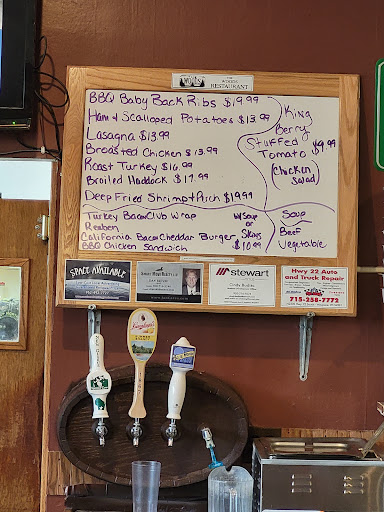 THE WOODS
RESTAURANT
BBQ Baby Back Ribs $19.99
Ham & Scalloped Potatoes $13.99
Lasagna $13.99
Broasted Chicken $13.99
Roast Turkey $16.99
Broiled Haddock $17.99
Deep Fried Shrimp & Perch $19.99
King
Berry
Stuffed
Tomato $9.99
(Chicken
Salad)
Turkey Bacon Club Wrap
Reuben
California Bacon Cheddar Burger
BBQ Chicken Sandwich
w/ Soup
or
Skins
$10.99
Soup
Beef
Vegetable
SPACE AVAILABLE
stewart
Hwy 22 Auto
and Truck Repair
715-258-7772
Leinenkugel's